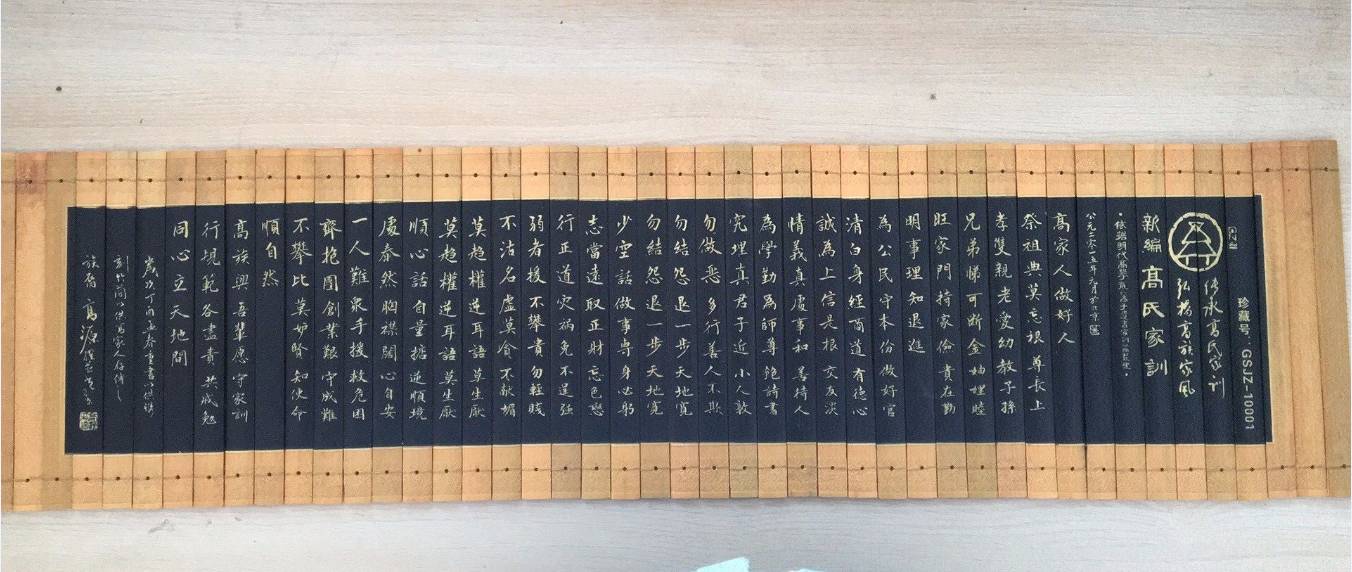 珍藏号：GSJZ-10001
传承高氏家训
弘扬高族家风
新编 高氏家训
高家人做好人
祭祖典莫忘根 尊長上
孝雙親老愛幼教子孫
兄弟悌可断金妯娌睦
旺家門持家儉 貴在勤
明事理知退進
為公民守本份做好官
清白身經商道有德心
誠為上信是根 交友淡
情義真處事和 善待人
為學勤為師尊飽詩書
究理真君子近小人敦
勿做惡多行善人不欺
勿結怨退一步天地寬
勿結怨退一步天地寬
少空話做事専身必躬
志當遠取正財忘色戀
行正道灾禍免不逞强
弱者援不攀貴勿輕賤
不沽名虚莫貪不献媚
莫趋權逆耳語莫生厭
莫趋權逆耳語莫生厭
順心話自量掂逆順境
處泰然胸襟闊心自安
一人難衆手援救危困
齊抱團創業艱守成難
不攀比莫妒賢知使命
順自然
高族興吾輩愿守家訓
行規範各盡責共成勉
同心立天地間
歲次丁酉孟春重書以供鐫
刻竹简供高家人存傳之
族裔 高源